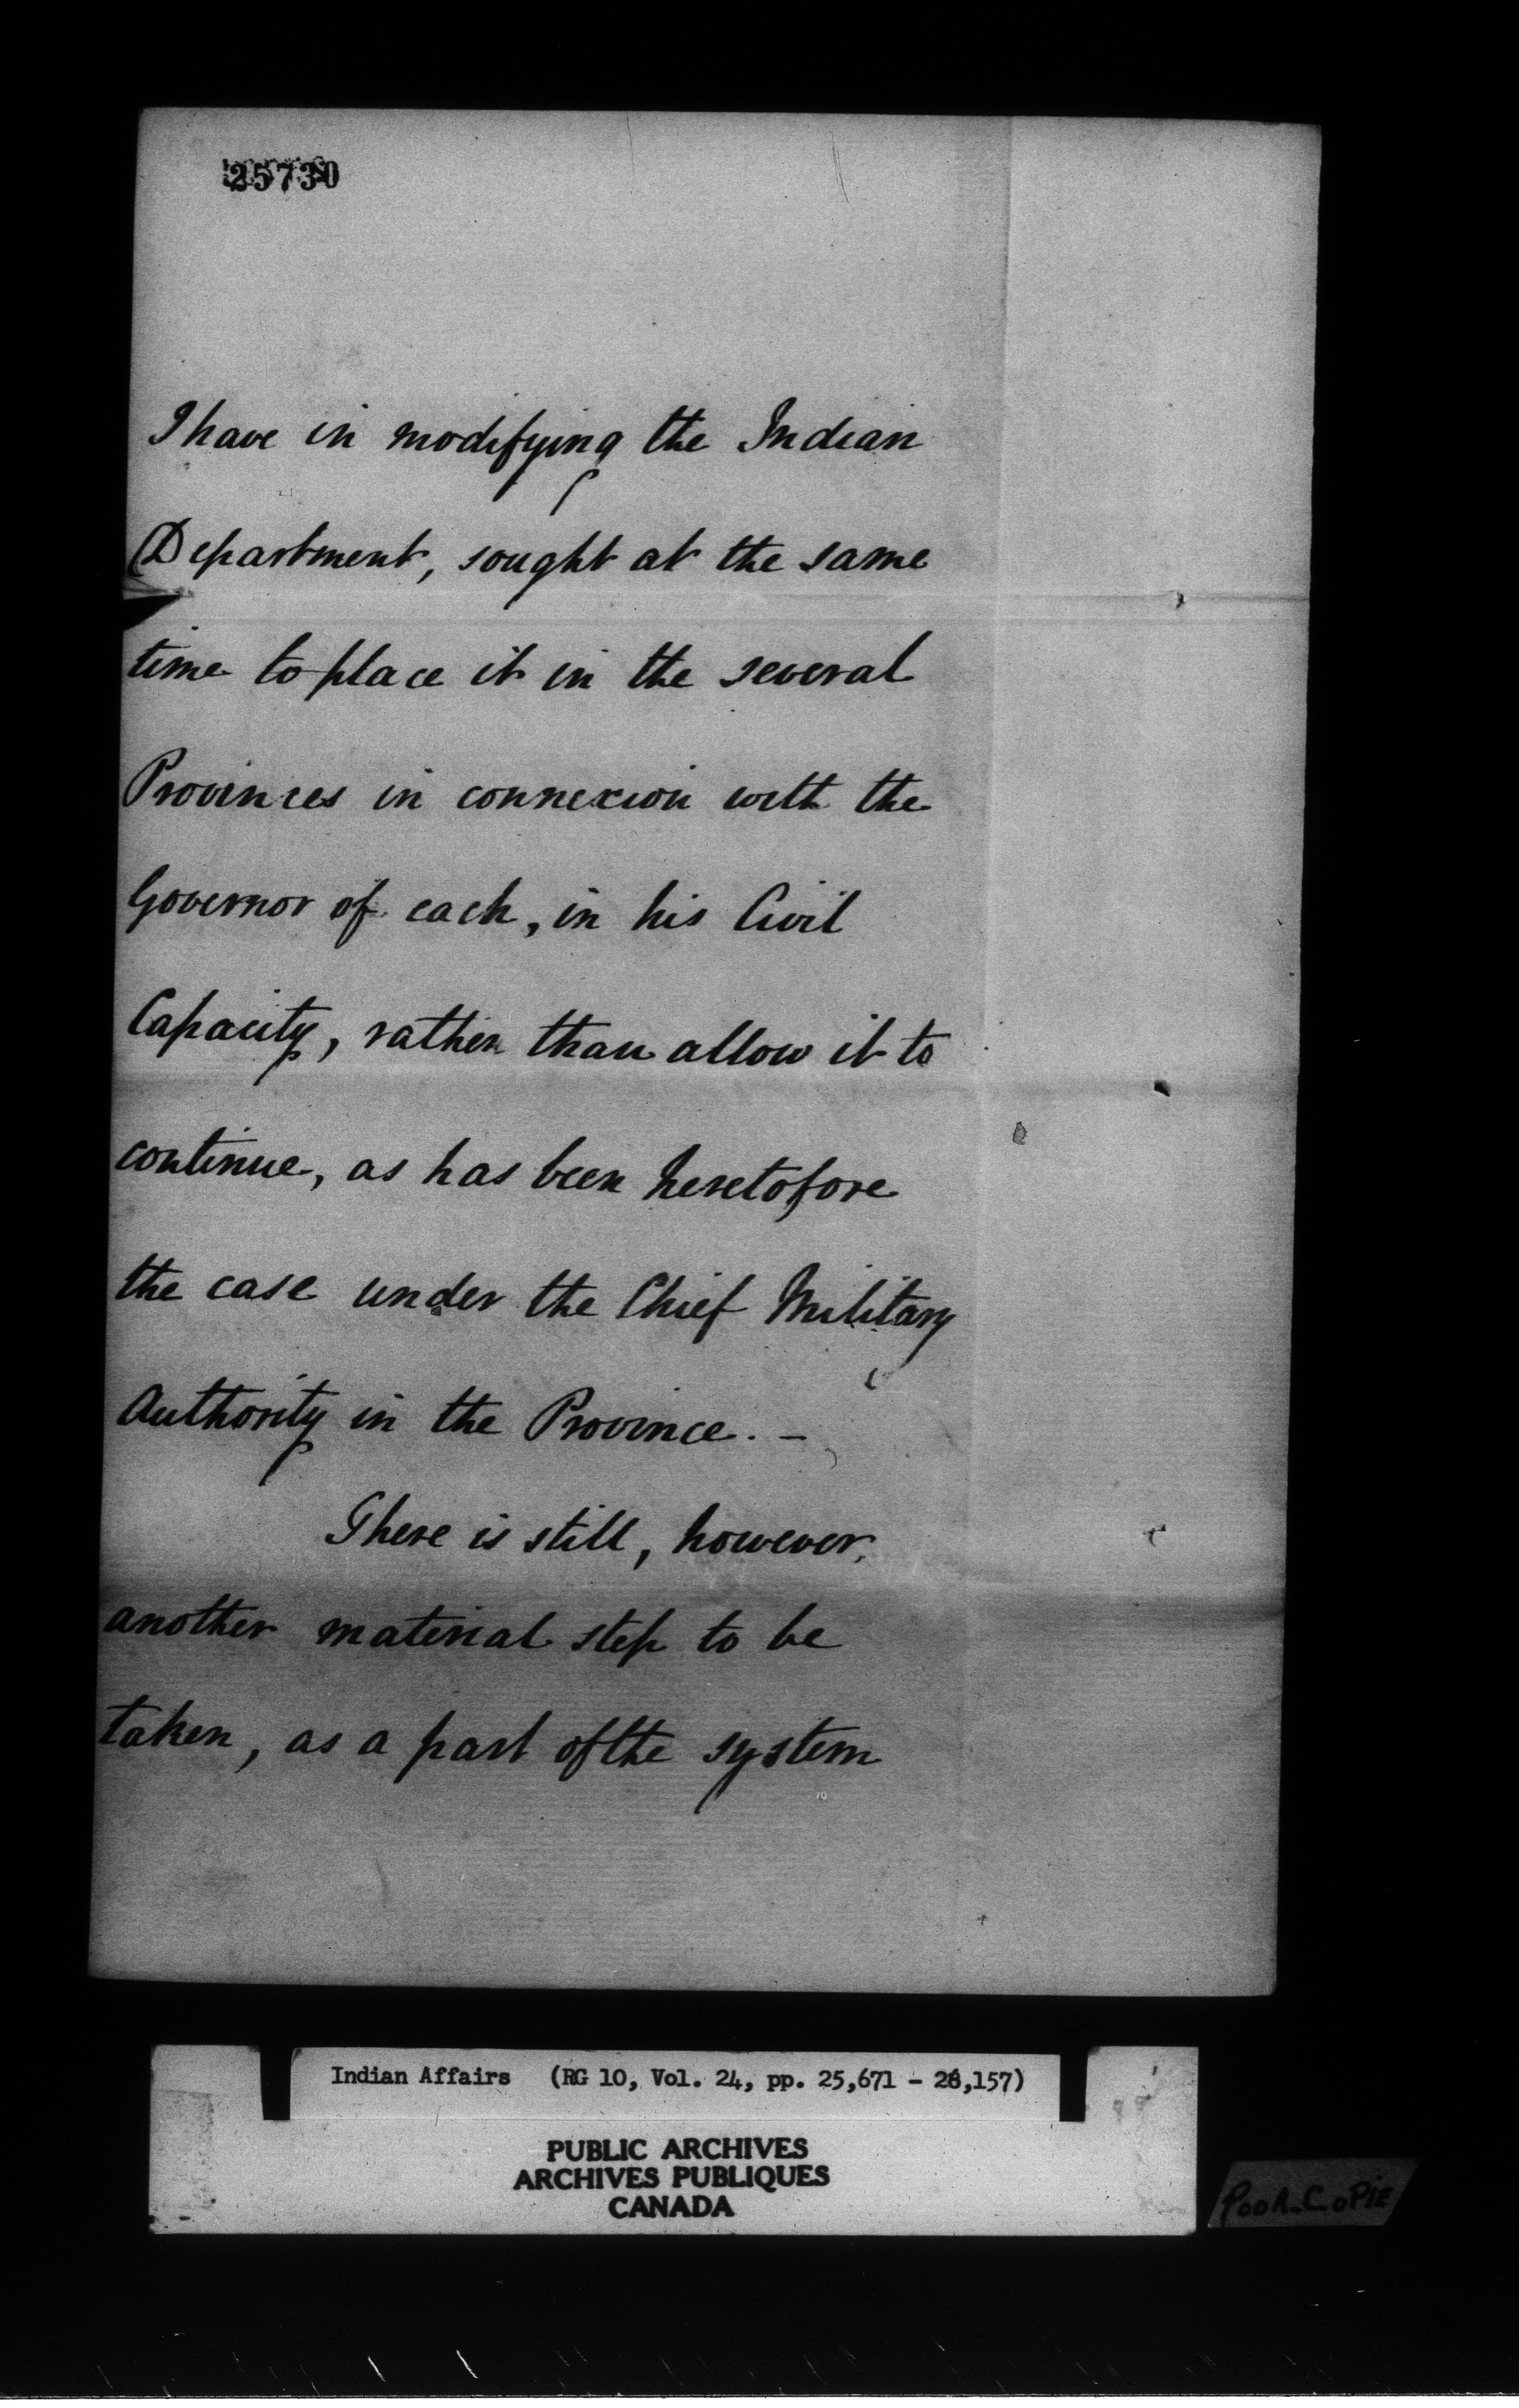 25730
I have in modifying the Indian
Department, sought at the same
time to place it in the several
Provinces in connexion with the
Governor of each, in his Civil
Capacity, rather than allow it to
continue, as has been heretofore
the case under the Chief Military
Authority in the Province. -
There is still, however,
another material step to be
taken, as a part of the system
Indian Affairs (RG 10, Vol. 24, pp. 25,671 - 26,157)
PUBLIC ARCHIVES
ARCHIVES PUBLIQUES
CANADA
POOR COPIE